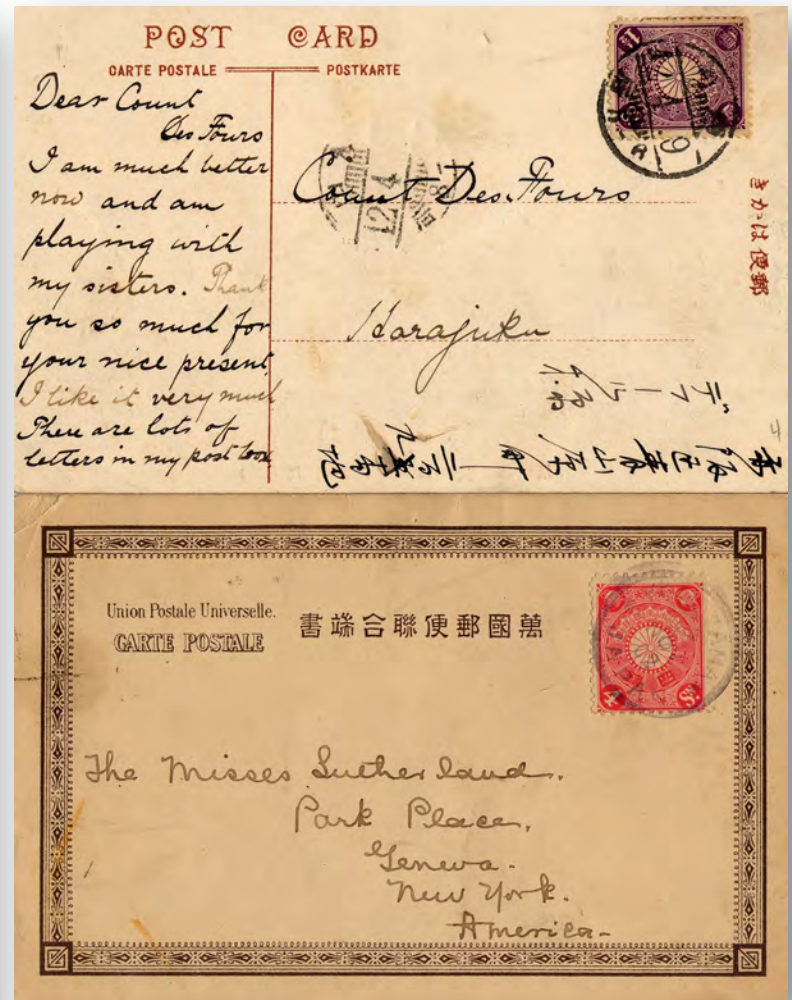 POST CARD
CARTE POSTALE
POSTKARTE
Dear Count
Des Fours
I am much better
now and am
playing with
my sisters. Thank
you so much for
your nice present
I like it very much
There are lots of
letters in my post box
Count Des Fours
Harajuku
郵便はかき
4
Union Postale Universelle.
CARTE POSTALE
萬國郵便聯合端書
4 Sn
The Misses Sutherland.
Park Place,
Geneva.
New York.
America-